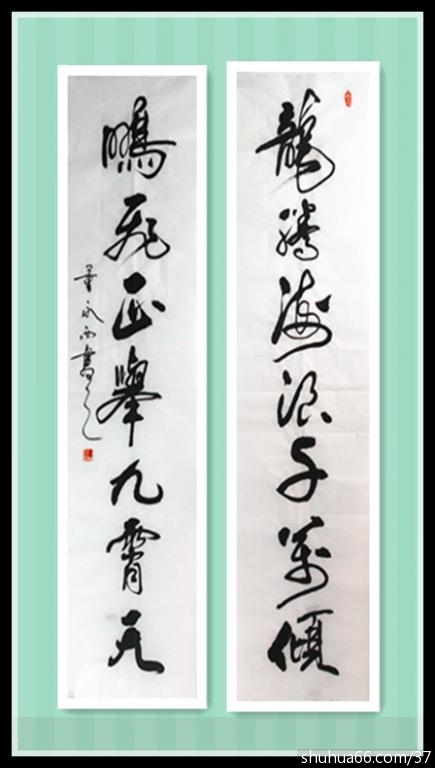 龍騰海浪千萬傾
鵬飛正舉九霄天
永西書
shuhua66.com/37